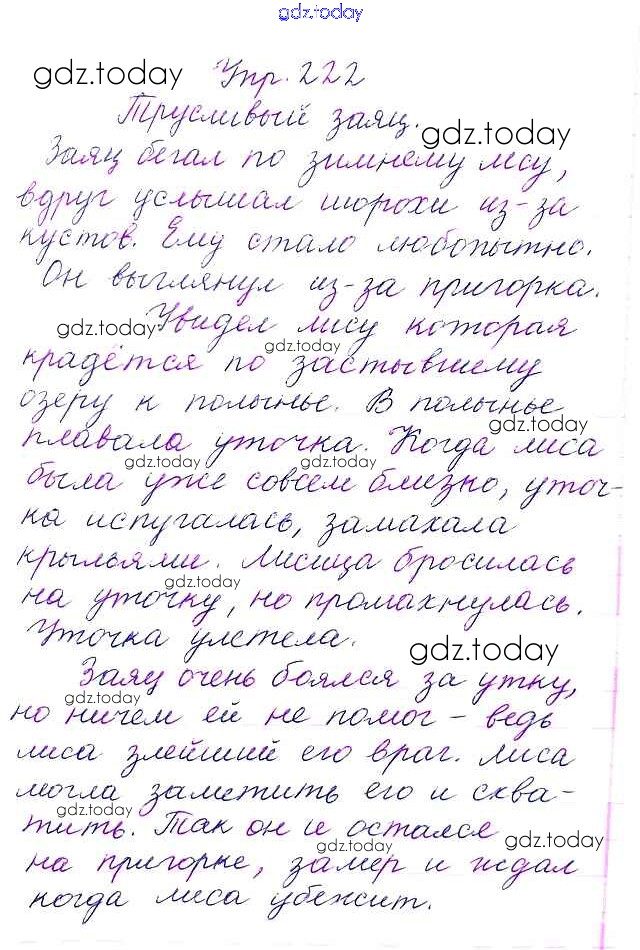 gdz.today
gdz.today Упр. 222
Трусливый заяц.
gdz.today
Заяц бегал по зимнему лесу,
вдруг услышал шорохи из-за
кустов. Ему стало любопытно.
Он выглянул из-за пригорка.
gdz.today Увидел лису которая
gdz.today
крадётся по застывшему
озеру к полынье. В полынье
gdz.today
плавала уточка. Когда лиса
gdz.today gdz.today
была уже совсем близко, уточ-
ка испугалась, замахала
крыльями. Лисица бросилась
gdz.today
на уточку, но промахнулась.
Уточка улетела.
gdz.today
Заяц очень боялся за утку,
gdz.today
но ничем ей не помог – ведь
лиса злейший его враг. Лиса
могла заметить его и схва-
gdz.today
тить. Так он и остался
gdz.today gdz.today
на пригорке, замер и ждал
когда лиса убежит.